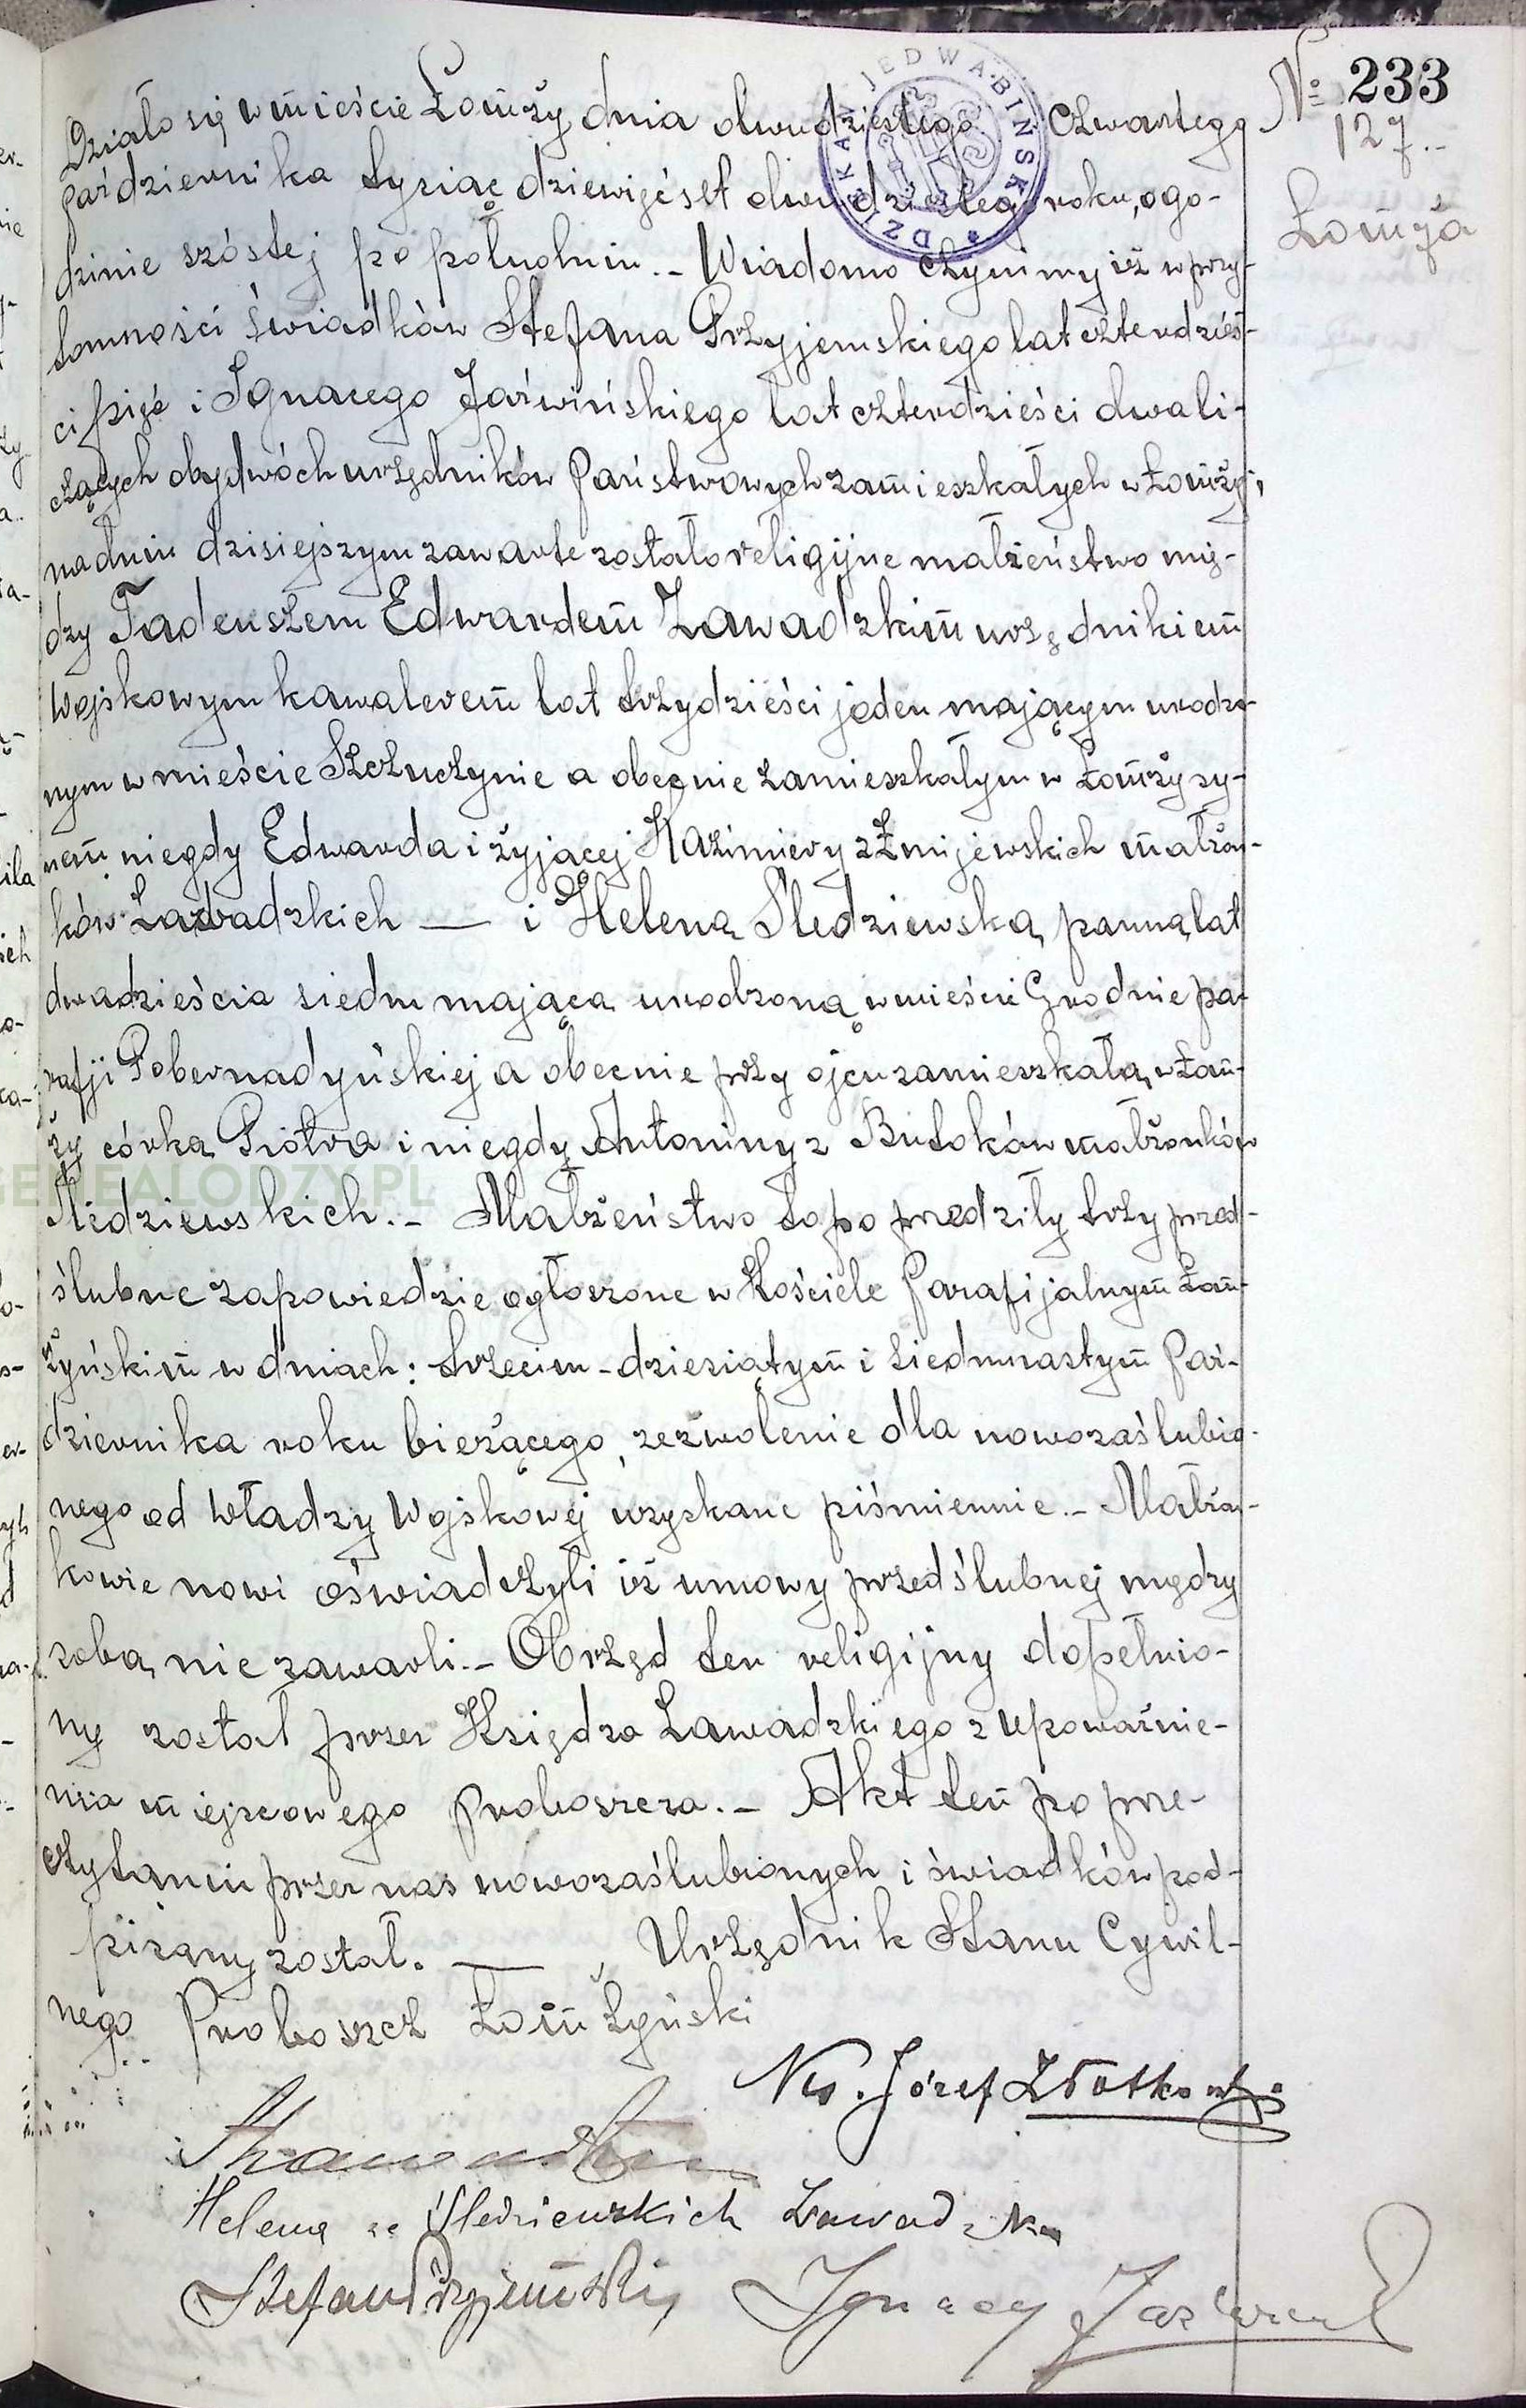 № 233
127..
Łomża
Działo się w mieście Łomży dnia dwudziestego czwartego
października tysiąc dziewięćset dwudziestego roku, o go-
dzinie szóstej po południu.- Wiadomo czynimy iż w przy-
tomności świadków Stefana Przyjemskiego lat czterdzieś-
ci pięć i Ignacego Jaźwińskiego lat czterdzieści dwa li-
czących obydwóch urzędników Państwowych zamieszkałych w Łomży,
na dniu dzisiejszym zawarte zostało religijne małżeństwo mię-
dzy Tadeuszem Edwardem Zawadzkim urzędnikiem
Wojskowym kawalerem lat trzydzieści jeden mającym urodzo-
nym w mieście Szczuczynie a obecnie zamieszkałym w Łomży sy-
nem niegdy Edwarda i żyjącej Kazimiery z Żmijewskich małżon-
ków Zawadzkich — i Heleną Śledziewską, panną lat
dwadzieścia siedm mającą urodzoną w mieście Grodnie pa-
rafji Pobernadyńskiej a obecnie przy ojcu zamieszkałą w Łom-
ży córką Piotra i niegdy Antoniny z Butoków małżonków
Śledziewskich.- Małżeństwo to poprzedziły trzy przed-
ślubne zapowiedzie ogłoszone w Kościele Parafijalnym Łom-
żyńskim w dniach: trzecim - dziesiątym i siedmnastym Paź-
dziernika roku bieżącego, zezwolenie dla nowozaślubio-
nego od Władzy Wojskowej uzyskane piśmiennie.- Małżon-
kowie nowi oświadczyli iż umowy przedślubnej mędzy
sobą nie zawarli.- Obrzęd ten religijny dopełnio-
ny został przez Księdza Zawadzkiego z upoważnie-
nia miejscowego Proboszcza.- Akt ten po prze-
czytaniu przez nas nowozaślubionych i świadków pod-
pisany został. — Urzędnik Stanu Cywil-
nego Proboszcz Łomżyński
Ks. Józef
Helena ze Śledziewskich Zawadzka
Stefan Przyjemski Ignacy
DZISKA W JEDWABIŃSK
GENEALODZY.PL